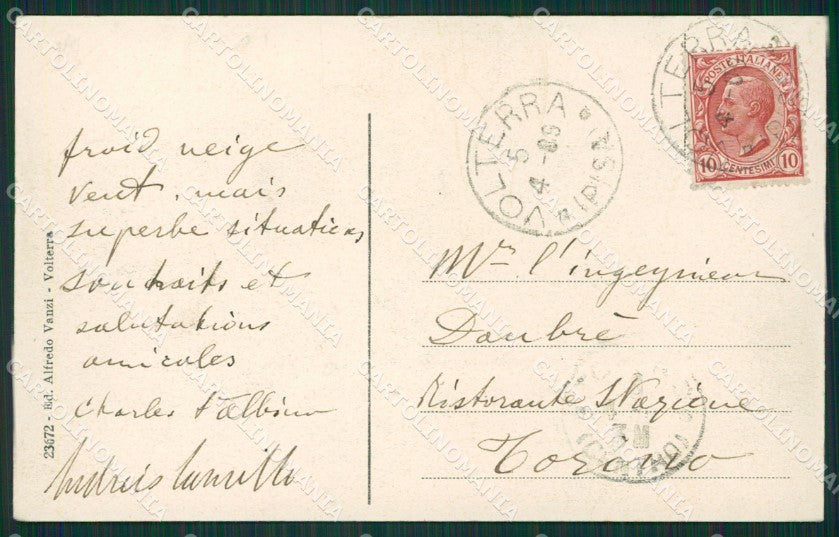 froid neige
vent, mais
superbe situation
souhaits et
salutations
amicales
Charles
23672 - Ed. Alfredo Vanzi - Volterra
VOLTERRA (PISA)
5 4 - 09
VOLTERRA
POSTE ITALIANE
10 CENTESIMI 10
Mr l'ingegnieur
Daubrè
Ristorante Stazione
Torino
CARTOLINOMANIA